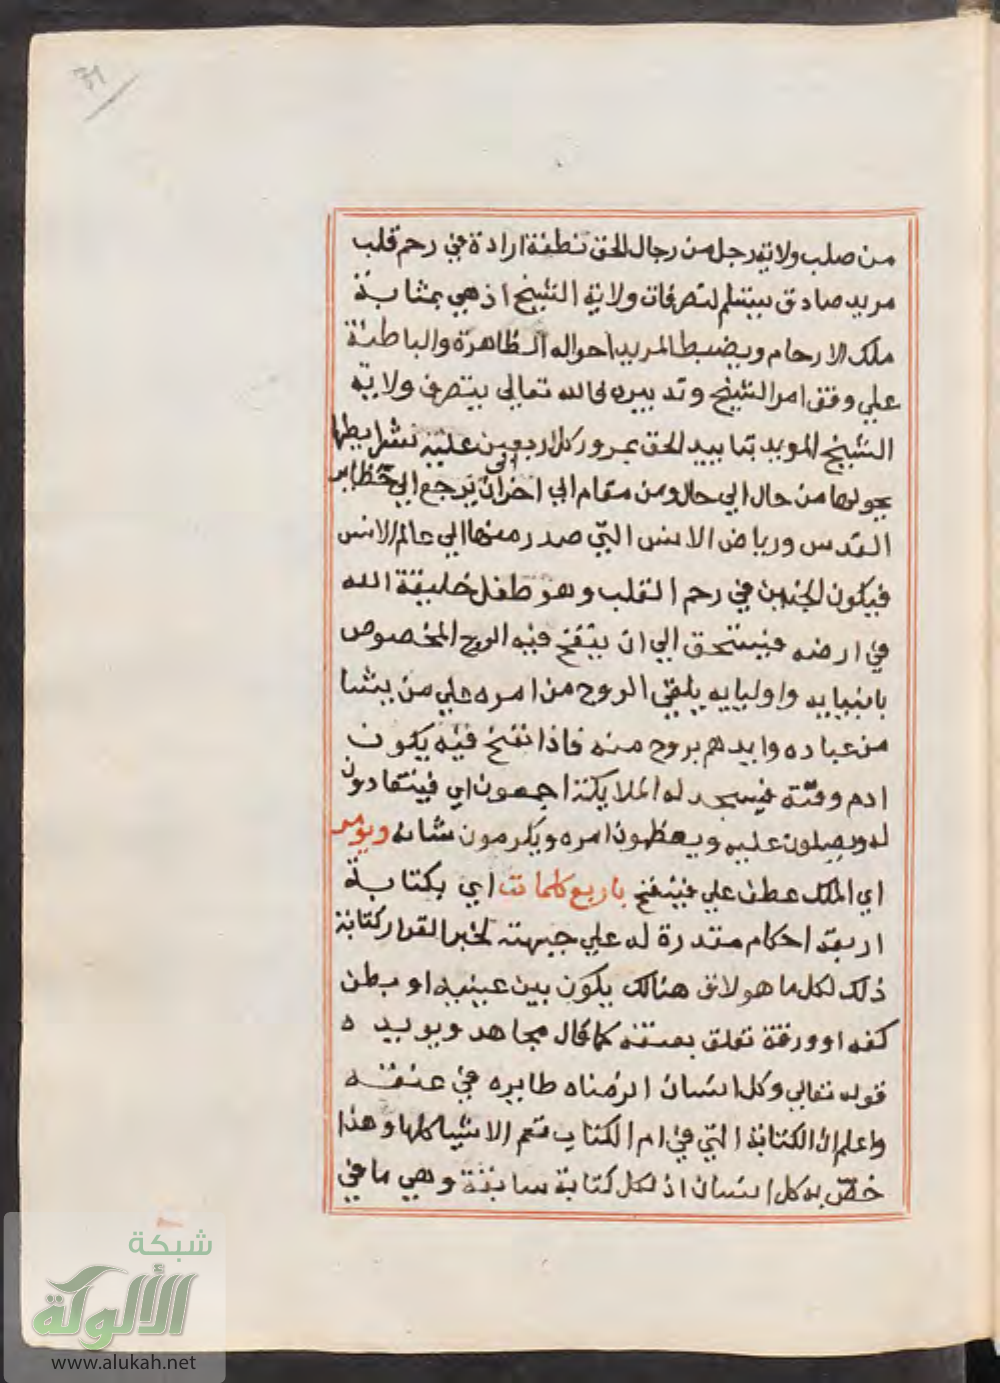 31
من صلب ولاية رجل من رجال الحق نطفة ارادة في رحم قلب
مريد صادق يستسلم لتصرفات ولاية الشيخ اذ هي بمثابة
ملك الارحام ويضبط المريد احواله الظاهرة والباطنة
علي وفق امر الشيخ وتدبيره فالله تعالي بتصرف ولاية
الشيخ المويد بتاييد الحق بمرور كل اربعين عليه بشرايطها
يحولها من حال الي حال ومن مقام الي اخر الي ان يرجع الي حظاير
القدس ورياض الانس التي صدر منها الي عالم الانس
فيكون الجنين في رحم القلب وهو طفل خليفة الله
في ارضه فيستحق الي ان ينفخ فيه الروح المخصوص
بانبيايه واوليايه يلقي الروح من امره علي من يشا
من عباده وايدهم بروح منه فاذا نفخ فيه يكون
ادم وقته فيسجد له الملايكة اجمعون اي فينقادون
له ويصلون عليه ويعظمون امره ويكرمون شانه ويومر
اي الملك عطف علي فينفخ باربع كلمات اي بكتابة
اربعة احكام مقدرة له علي جبهته لخبر القرار كتابة
ذلك لكل ما هو لائق هنالك يكون بين عينيه او بطن
كفه او ورقة تعلق بعنقه كما قال مجاهد ويويده
قوله تعالي وكل انسان الزمناه طايره في عنقه
واعلم ان الكتابة التي في ام الكتاب تعم الاشيا كلها وهذا
خص به كل انسان اذ لكل كتابة سابقة وهي ما في
شبكة
الألوكة
www.alukah.net